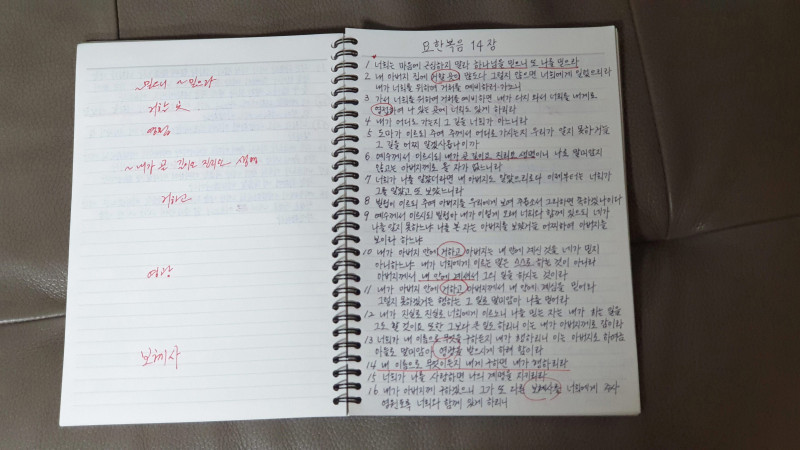 ~믿으니 ~믿으라
거할 곳
영접
~내가 곧 길이요 진리요 생명
거하고
영광
보혜사
요한복음 14장
1 너희는 마음에 근심하지 말라 하나님을 믿으니 또 나를 믿으라
2 내 아버지 집에 거할 곳이 많도다 그렇지 않으면 너희에게 일렀으리라
내가 너희를 위하여 거처를 예비하러 가노니
3 가서 너희를 위하여 거처를 예비하면 내가 다시 와서 너희를 내게로
영접하여 나 있는 곳에 너희도 있게 하리라
4 내가 어디로 가는지 그 길을 너희가 아느니라
5 도마가 이르되 주여 주께서 어디로 가시는지 우리가 알지 못하거늘
그 길을 어찌 알겠사옵나이까
6 예수께서 이르시되 내가 곧 길이요 진리요 생명이니 나로 말미암지
않고는 아버지께로 올 자가 없느니라
7 너희가 나를 알았더라면 내 아버지도 알았으리로다 이제부터는 너희가
그를 알았고 또 보았느니라
8 빌립이 이르되 주여 아버지를 우리에게 보여 주옵소서 그리하면 족하겠나이다
9 예수께서 이르시되 빌립아 내가 이렇게 오래 너희와 함께 있으되 네가
나를 알지 못하느냐 나를 본 자는 아버지를 보았거늘 어찌하여 아버지를
보이라 하느냐
10 내가 아버지 안에 거하고 아버지는 내 안에 계신 것을 네가 믿지
아니하느냐 내가 너희에게 이르는 말은 스스로 하는 것이 아니라
아버지께서 내 안에 계셔서 그의 일을 하시는 것이라
11 내가 아버지 안에 거하고 아버지께서 내 안에 계심을 믿어라
그렇지 못하겠거든 행하는 그 일로 말미암아 나를 믿어라
12 내가 진실로 진실로 너희에게 이르노니 나를 믿는 자는 내가 하는 일을
그도 할 것이요 또한 그보다 큰 일도 하리니 이는 내가 아버지께로 감이라
13 너희가 내 이름으로 무엇을 구하든지 내가 행하리니 이는 아버지로 하여금
아들로 말미암아 영광을 받으시게 하려 함이라
14 내 이름으로 무엇이든지 내게 구하면 내가 행하리라
15 너희가 나를 사랑하면 나의 계명을 지키리라
16 내가 아버지께 구하겠으니 그가 또 다른 보혜사를 너희에게 주사
영원토록 너희와 함께 있게 하리니